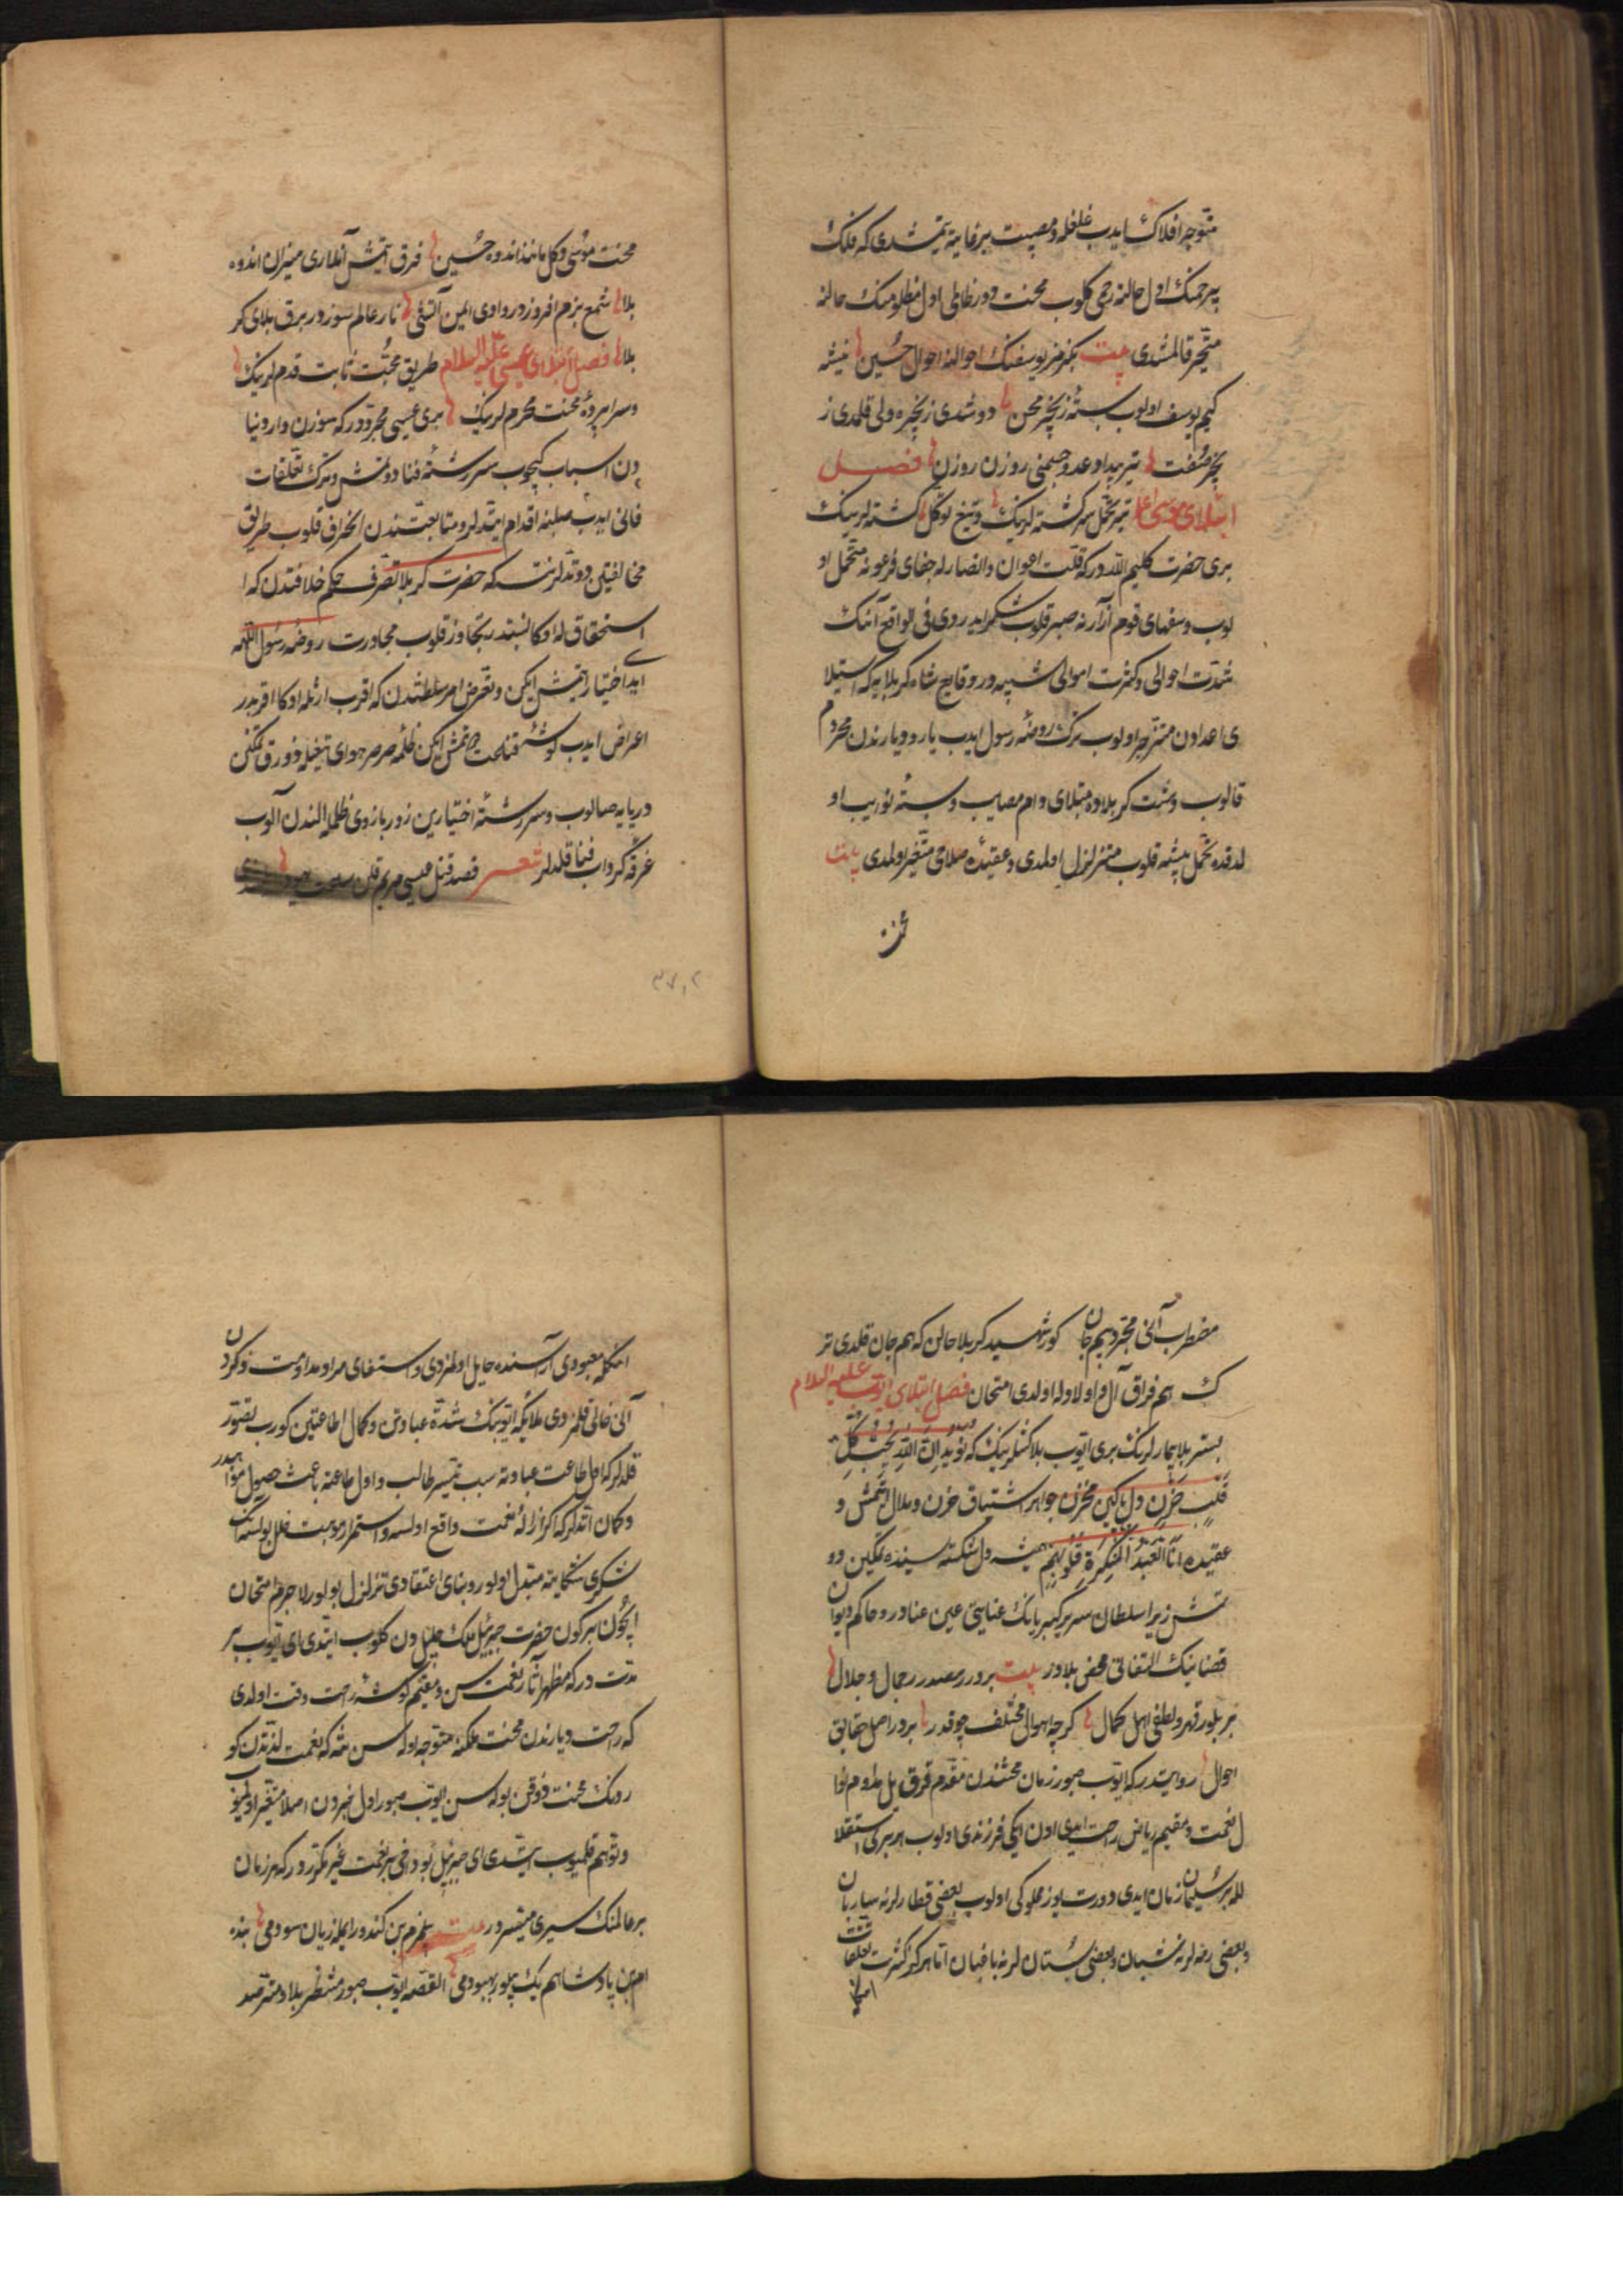 متوجه افلاك ایدب غلغلهٔ مصیبت بیر غایته یتمشدی که فلك
بیرحمنك اول حالنه رحمی کلوب محنت دورظالمی اول مظلومنك حالنه
متحیر قالمشدی بیت بکزمز یوسفنك احوالنه احوال حسین نیشه
کیم یوسف اولوب بستهٔ زنجیر محن دوشدی زنجیره ولی قلمدی ز
تیر بیداد عدو جسمنی روزن روزن فصل
ابتلای موسی تیر تحمل سر کشته لرینك و تیغ توکل کشته لرینك
بری حضرت کلیم الله درکه قلت اعوان و انصارله جفای فرعونه متحمل او
لوب و سفهای قوم آزارنه صبر قلوب شکر ایدردی فی الواقع آنك
شدت احوالی و کثرت اهوالی شبیه در وقایع شاه کربلایه که استیلا
ی اعدادن منزجر اولوب ترك روضهٔ رسول ایدب یار و دیارندن محروم
قالوب دشت کربلاده مبتلای دام مصایب و بستهٔ نوایب او
لدقده تحمل پیشه قلوب متزلزل اولمدی و عقیدهٔ صلاحی متغیر اولمدی بیت
محنت
محنت موسی دکل مانند اندوه حسین فرق ایتمش آنلاری میزان اندوه
بلا شمع بزم افروزدر وادی ایمن آتشی نار عالم سوزدر برق بلای کر
بلا فصل ابتلای عیسی علیه السلام طریق محبت ثابت قدم لرینك
و سراپردهٔ محنت محرم لرینك بری عیسی مجرددر که سوزن وار دنیا
دن اسباب کچوب سررشتهٔ فنا دوتمش و ترك تعلقات
فانی ایدب صلبنه اقدام ایتدیلر و متابعتندن انحراف قلوب طریق
مخالفتین دوتدیلر نته که حضرت کربلا تصرف حکم خلافتدن که ا
استحقاق له اوکا نسبتدر تجاوز قلوب مجاورت روضهٔ رسول اللهه
ایدا اختیار ایتمش ایکن و تعرض امر سلطنتدن که اقرب ارثله اوکا اقربدر
اعراض ایدب کوشهٔ قناعت دوتمش ایکن ظلمه صرصر هوای تیغیله زورق تمکنن
دریایه صالوب و سررشتهٔ اختیارین زور بازوی ظلمله الندن آلوب
غرقهٔ کرداب فنا قلدلر شعر قصد قتل عیسی مریم قلن
مضطرب آنی مجرد بیم جان کور شهید کربلا حالن که هم جان قلدی تر
ك هم فراق آل و اولادله اولدی امتحان فصل ابتلای ایوب علیه السلام
بستر بلا بیمارلرینك بری ایوب بلاکشلرینك که نوید ان الله یحب کل
قلب حزین دل پاکین مخزن جواهر اشتیاق حزن و ملال ایتمش و
عقیده انا العبد المنکسرة قلوبهم همیشه دل شکسته سینده تمکین دو
تمش زیرا سلطان سریر کبریانك عنایتی عین عنادر و حاکم دیوان
قضانیك التفاتی محض بلادر بیت بردر مصدر جمال و جلال
بر بلور قهر و لطفی اهل کمال کرچه اهوال مختلف چوقدر بردر اصل حقایق
احوال روایتدر که ایوب صبور زمان محنتندن مقدم قرق ییل مداوم نوا
ل نعمت و مقیم ریاض راحت ایدی اون ایکی فرزندی اولوب هر بری استقلا
لله بر سلیمان زمان ایدی و دورت یوز مملوکی اولوب بعضی قطارلرنه ساربان
و بعضی رمه لرنه شبان و بعضی بستان لرنه باغبان اما هرکز کثرت تعلقات
انکله معبودی آراسنده حایل اولمزدی و استغنای مراد مداومت ذکردن
آنی خالی قلمزدی ملائکه ایوبنك شدة عبادتن و کمال اطاعتین کورب تصور
قلدلر که اول طاعت عبادته سبب تیسیر مطالب و اول طاعته باعث حصول مواهبدر
و کمان ایتدلر که اکر ازالهٔ نعمت واقع اولسه و استمرار موهبت خلل بولسه آنك
شکری شکایته متبدل اولور و بنای اعتقادی تزلزل بولور لاجرم امتحان
ایچون بر کون حضرت جبرئیل ملك جلیل دن کلوب ایتدی ای ایوب بر
مدت درکه مظهر آثار نعمت سن و مقیم کوشهٔ راحت وقت اولدی
که راحت دیارندن محنت ملکنه متوجه اوله سن نته که نعمت لذتندن کو
ردنك محنت ذوقن بوله سن ایوب صبور اول خبردن اصلا متغیر اولمیوب
و توهم قلمیوب ایتدی ای جبرئیل بو دخی بر نعمت غیر مکرردر که هر زمان
بر عالمنك سیری میسردر بیت بیلمزم بن کندو رایمله زیان سودمی بنده
ام بن پادشاهم یك بیلور بهبودمی القصه ایوب صبور منتظر بلا و مترصد